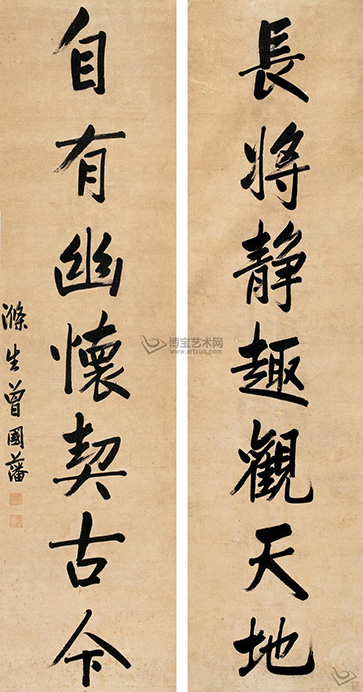 長將靜趣觀天地
自有幽懷契古今
滌生曾國藩
博宝艺术网
www.artxun.com